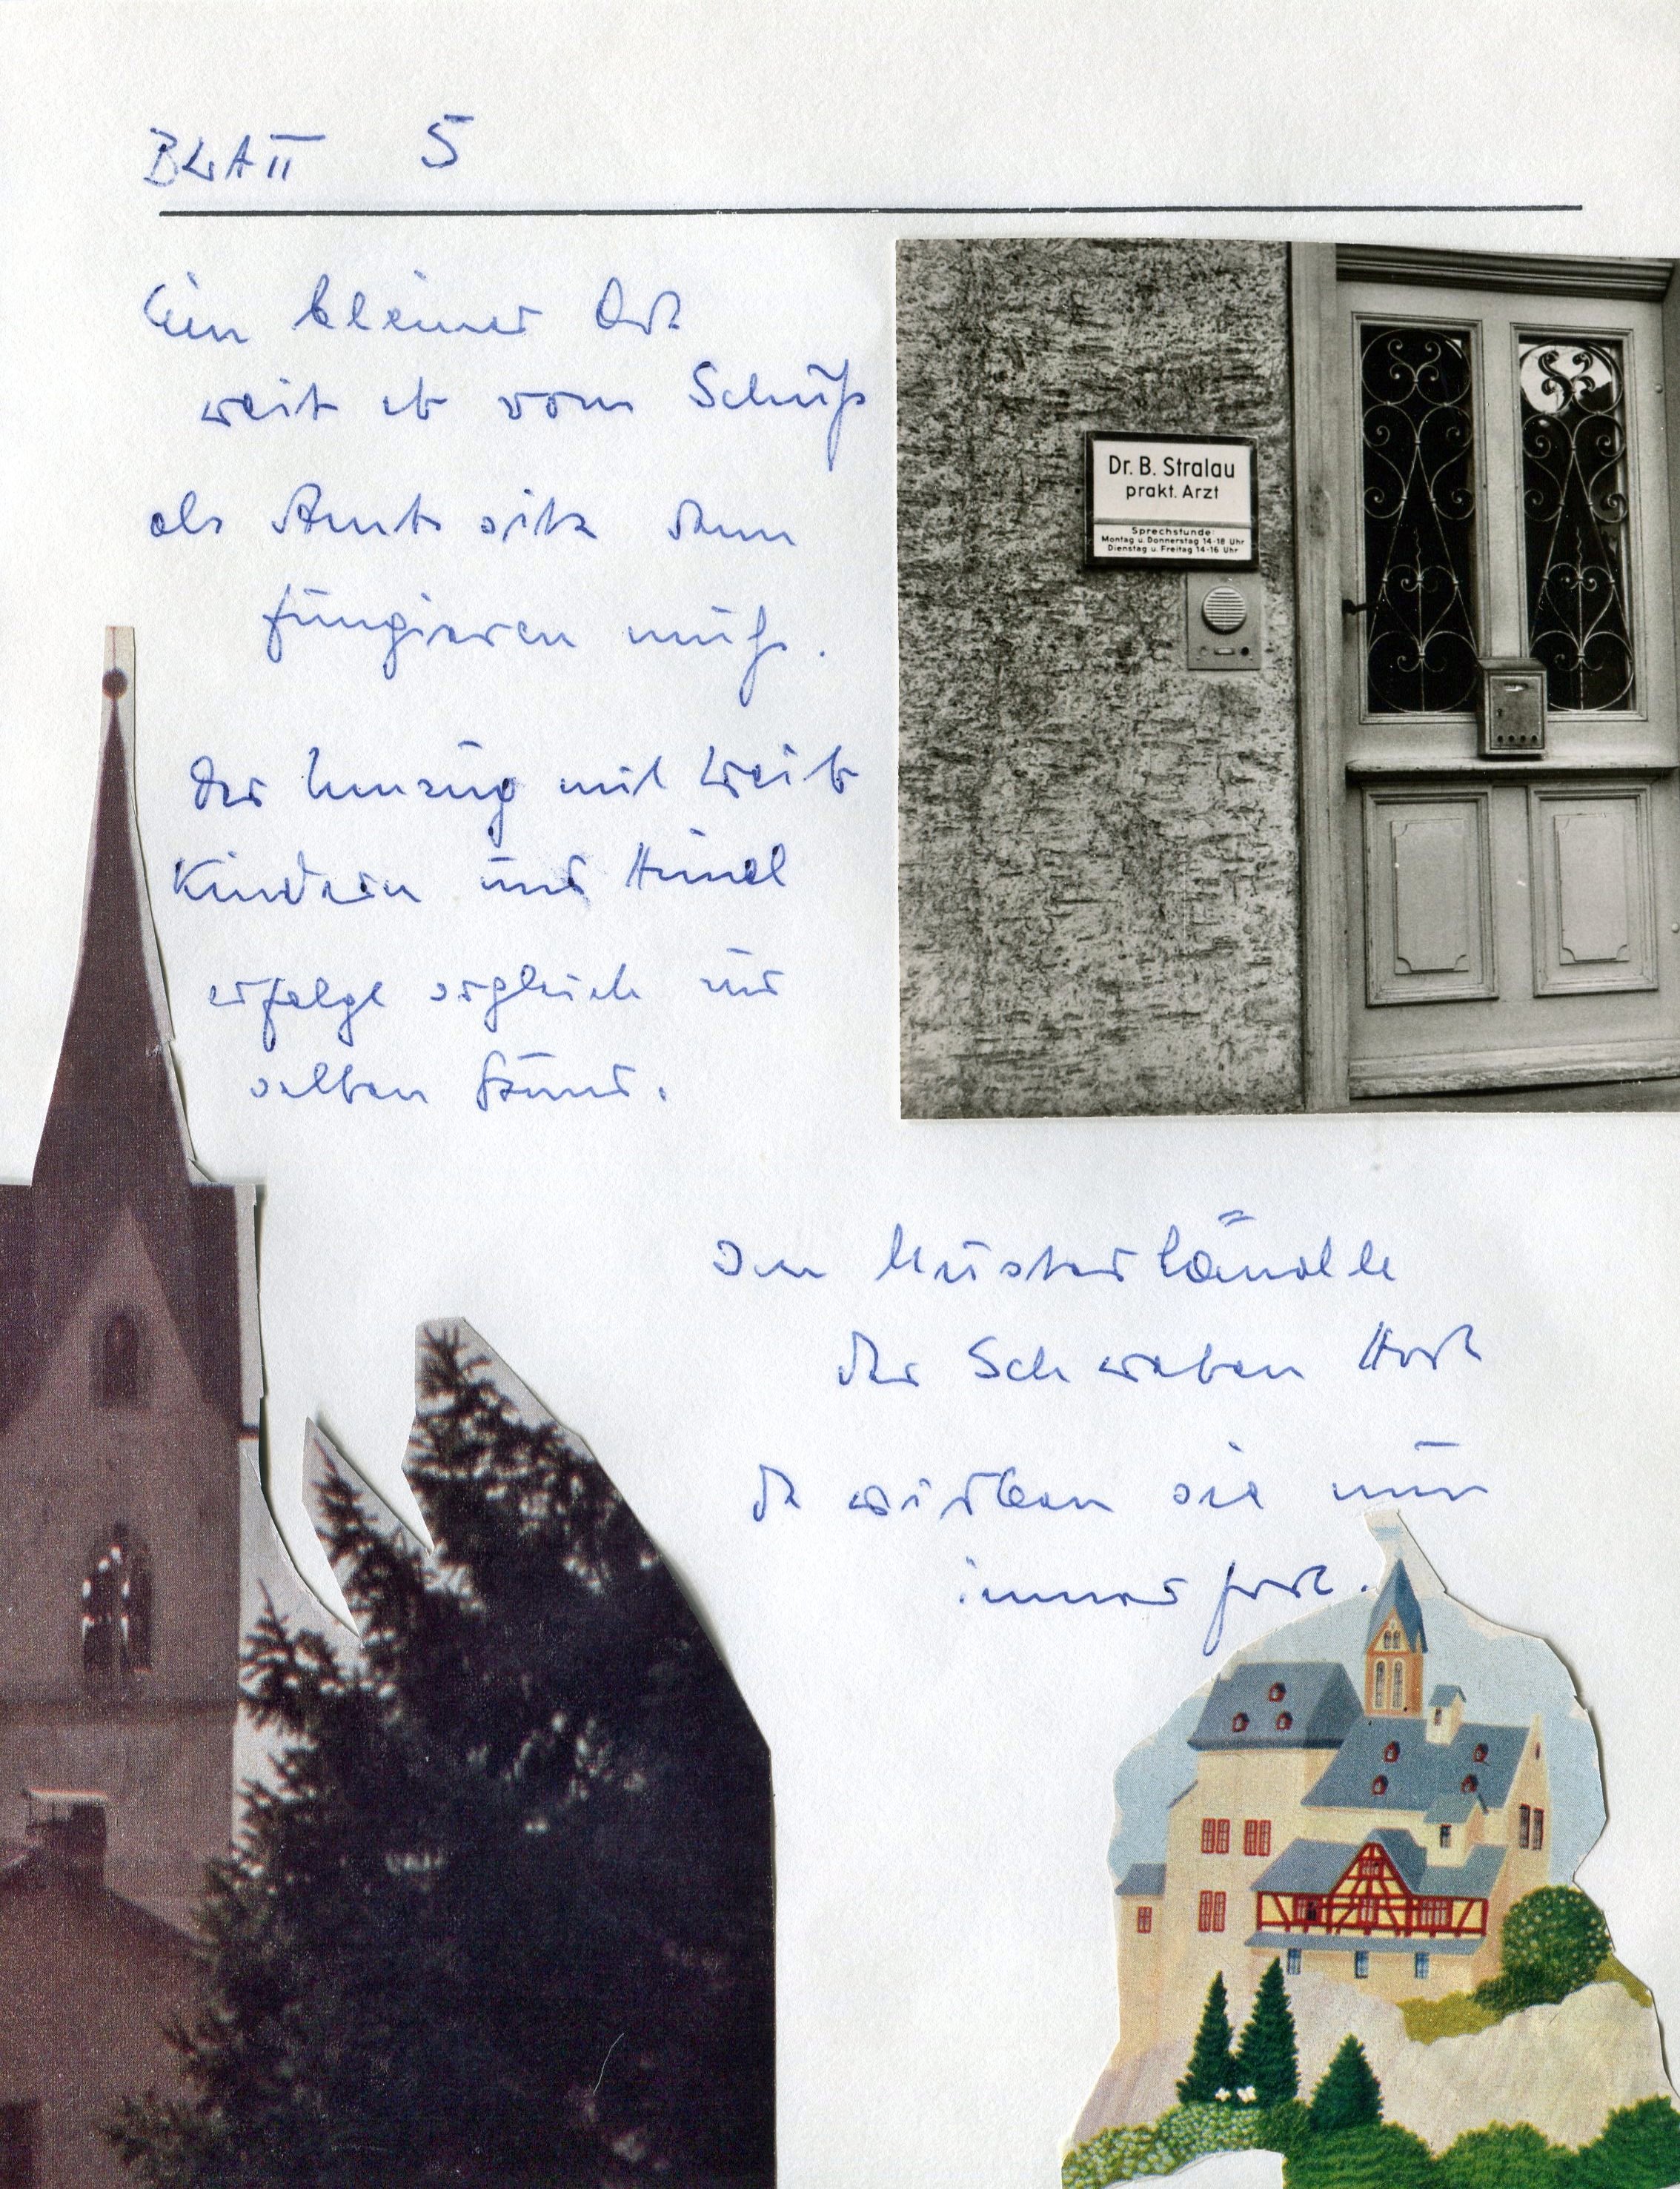 BLATT 5
Ein kleiner Ort
weit ab vom Schuß
als Amtssitz dann
fungieren muß.
Der Umzug mit Weib
Kindern und Hund
erfolgt sogleich zur
selben Stund.
Im Musterländle
der Schwaben Hort
da wirken sie nun
immerfort.
Dr. B. Stralau
prakt. Arzt
Sprechstunde:
Montag u. Donnerstag 14-18 Uhr
Dienstag u. Freitag 14-16 Uhr